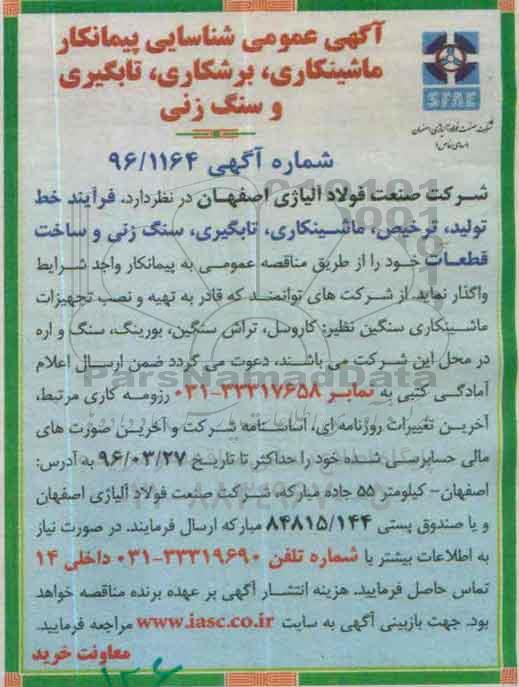 آگهی عمومی شناسایی پیمانکار
ماشینکاری، برشکاری، تابگیری
و سنگ زنی
SFAE
شرکت صنعت فولاد آلیاژی اصفهان
شماره آگهی ۹۶/۱۱۶۴
شرکت صنعت فولاد آلیاژی اصفهان در نظردارد، فرآیند خط
تولید، ترخیص، ماشینکاری، تابگیری، سنگ زنی و ساخت
قطعات خود را از طریق مناقصه عمومی به پیمانکار واجد شرایط
واگذار نماید. از شرکت های توانمند که قادر به تهیه و نصب تجهیزات
ماشینکاری سنگین نظیر: کاروسل، تراش سنگین، بورینگ، سنگ و اره
در محل این شرکت می باشند، دعوت می گردد ضمن ارسال اعلام
ParsNamadData
آمادگی کتبی به نمابر ۳۳۳۱۷۶۵۸-۰۳۱ رزومه کاری مرتبط،
آخرین تغییرات روزنامه ای، اساسنامه شرکت و آخرین صورت های
مالی حسابرسی شده خود را حداکثر تا تاریخ ۹۶/۰۳/۲۷ به آدرس:
اصفهان- کیلومتر ۵۵ جاده مبارکه، شرکت صنعت فولاد آلیاژی اصفهان
و یا صندوق پستی ۸۴۸۱۵/۱۴۴ مبارکه ارسال فرمایند. در صورت نیاز
به اطلاعات بیشتر با شماره تلفن ۳۳۳۱۹۶۹۰-۰۳۱ داخلی ۱۴
تماس حاصل فرمایید. هزینه انتشار آگهی بر عهده برنده مناقصه خواهد
بود. جهت بازبینی آگهی به سایت www.iasc.co.ir مراجعه فرمایید.
معاونت خرید